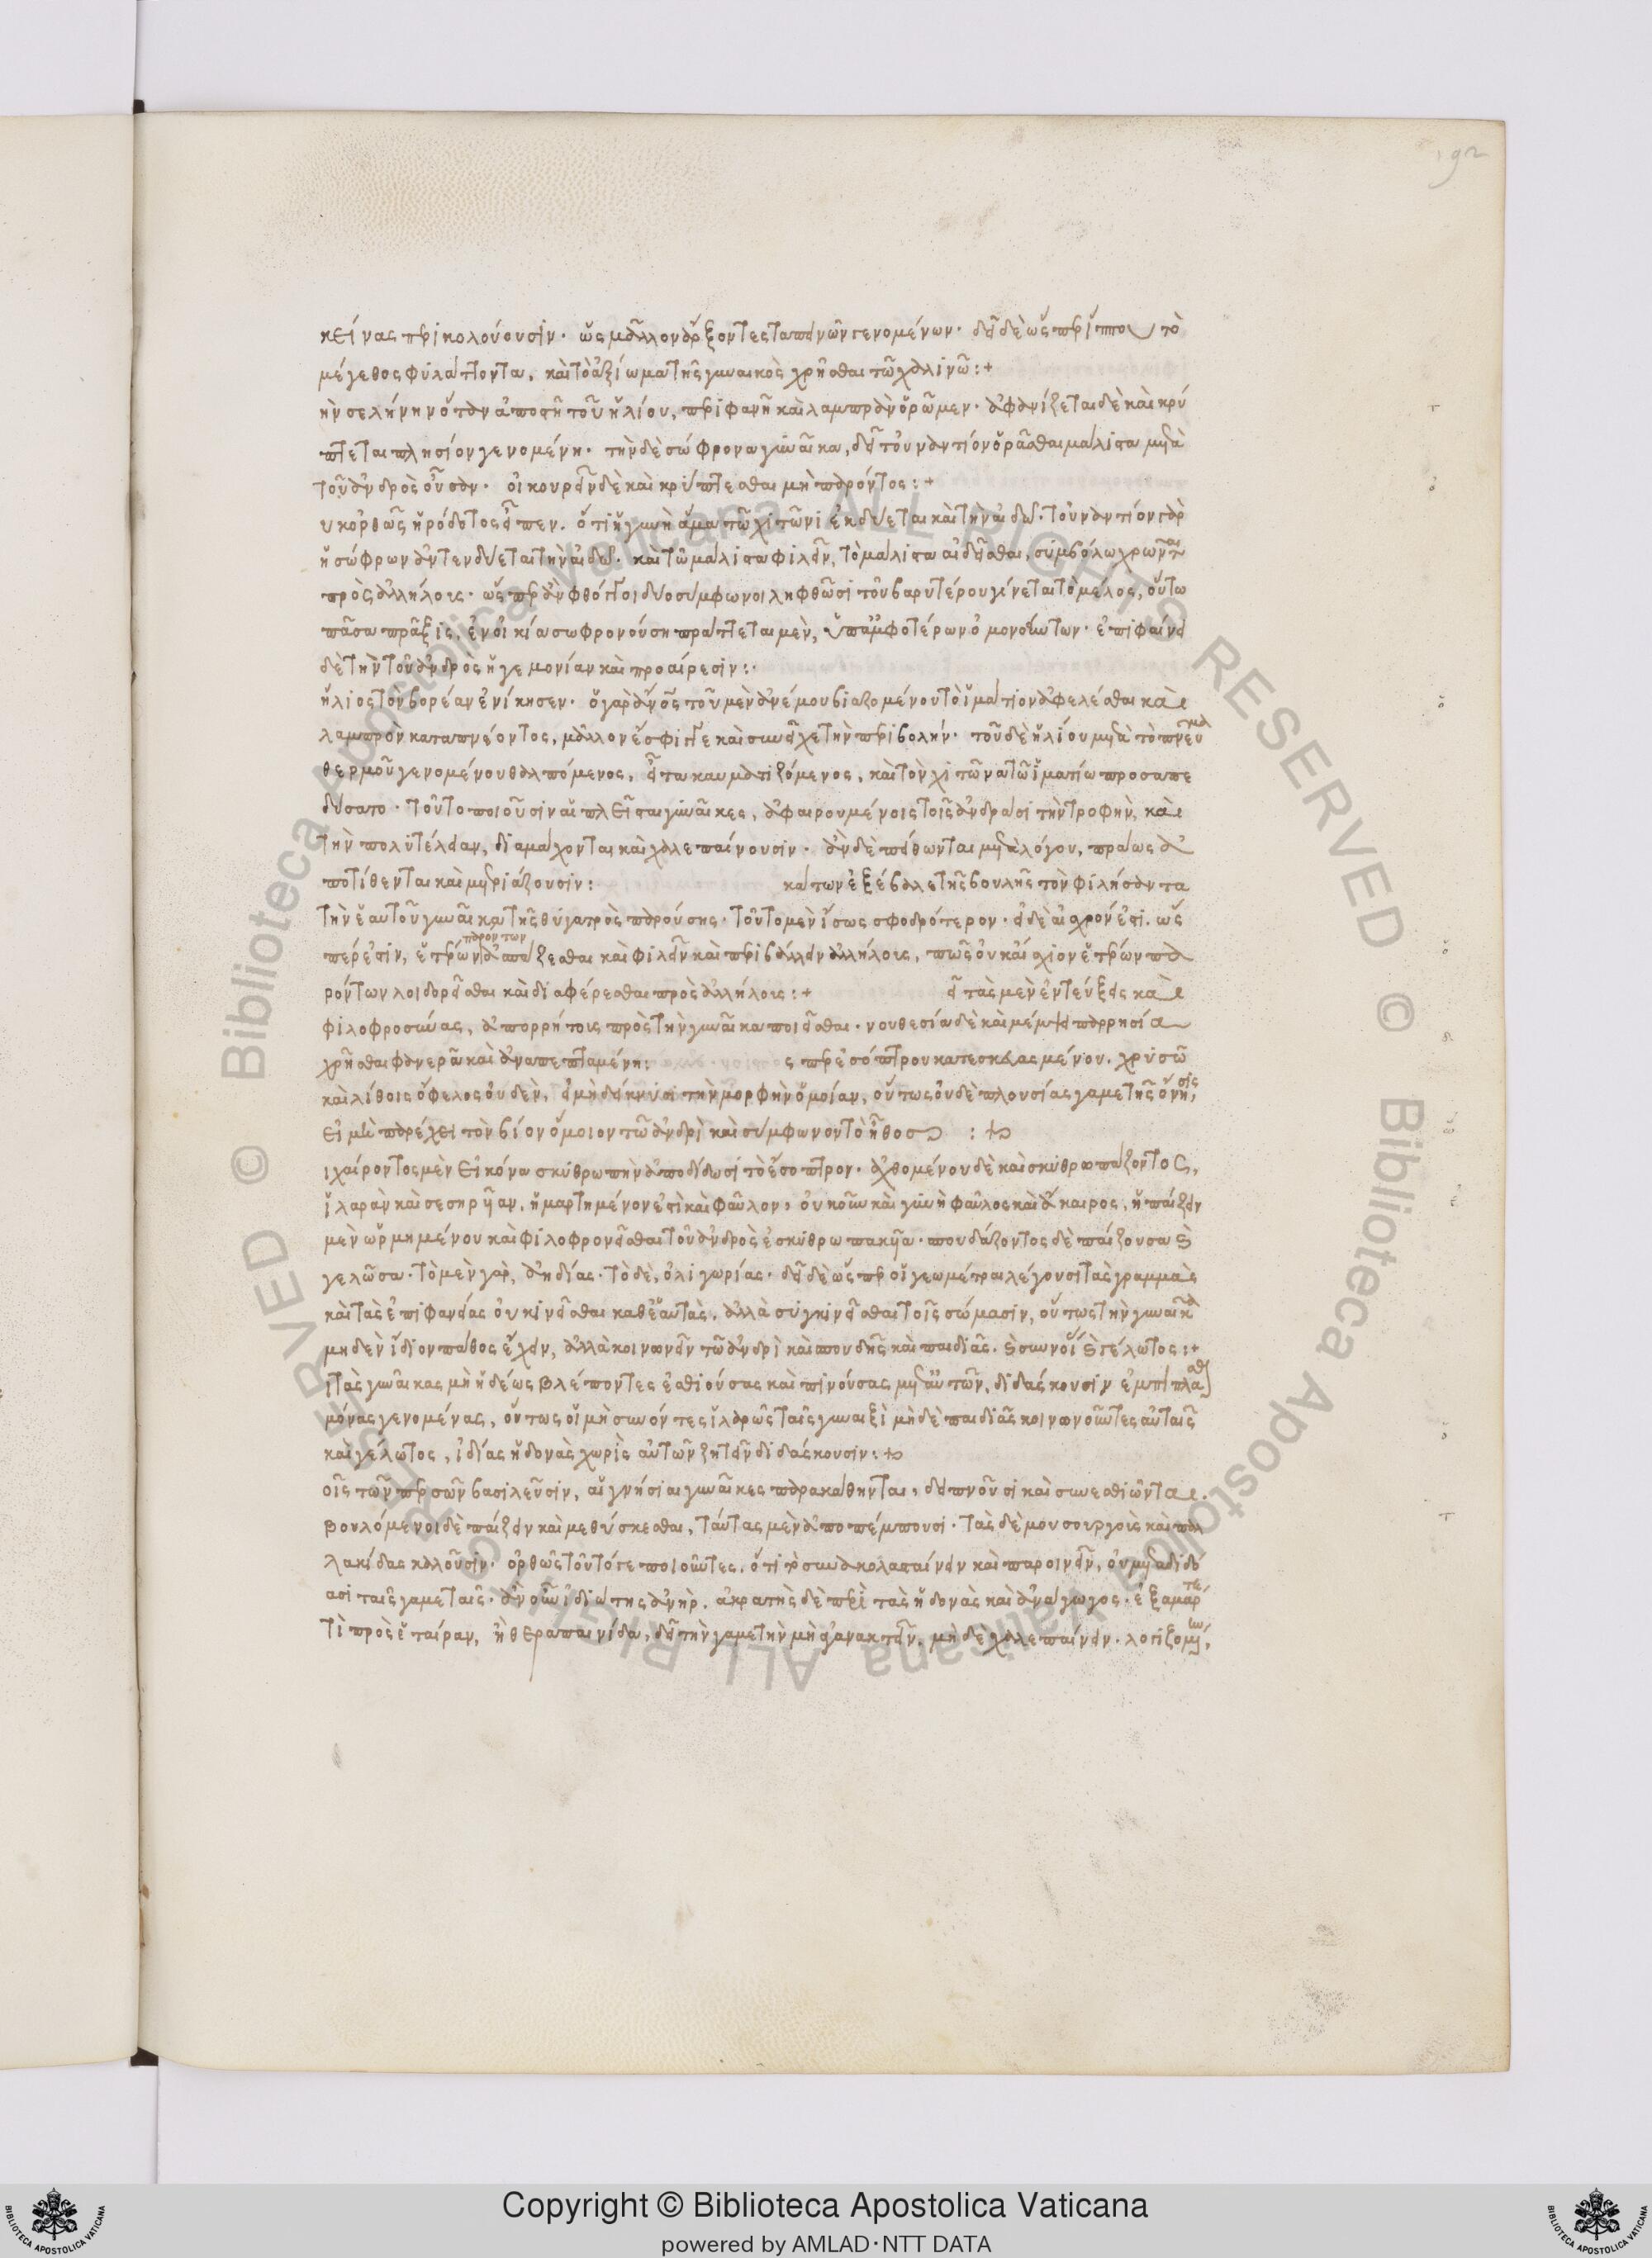 192
κείνας περικολούουσιν· ὡς μᾶλλον ἄρξοντες ταπεινῶν γενομένων· δεῖ δὲ ὥσπερ ἵππου τὸ
μέγεθος φυλάττοντα, καὶ τὸ ἀξίωμα τῆς γυναικὸς χρῆσθαι τῶ χαλινῶ:+
ην σελήνην ὅταν ἀποστῆ τοῦ ἡλίου, περιφανῆ καὶ λαμπρὰν ὁρῶμεν· ἀφανίζεται δὲ καὶ κρύ
πτεται πλησίον γενομένη· τὴν δὲ σώφρονα γυναῖκα, δεῖ τουναντίον ὁρᾶσθαι μάλιστα μετὰ
τοῦ ἀνδρὸς οὖσαν· οἰκουρεῖν δὲ καὶ κρύπτεσθαι μὴ παρόντος:+
υκ ὀρθῶς ἡρόδοτος εἶπεν. ὅτι ἡ γυνὴ ἅμα τῶ χιτῶνι ἐκδύεται καὶ τὴν αἰδῶ· τοὐναντίον γὰρ
ἡ σώφρων ἀντενδύεται τὴν αἰδῶ· καὶ τῶ μάλιστα φιλεῖν, τὸ μάλιστα αἰδεῖσθαι, συμβόλω χρῶνται
πρὸς ἀλλήλους· ὥσπερ ἂν φθόγγοι δύο σύμφωνοι ληφθῶσι τοῦ βαρυτέρου γίνεται τὸ μέλος, οὕτω
πᾶσα πρᾶξις, ἐν οἰκία σωφρονούση πράττεται μὲν, ὑπ' ἀμφοτέρων ὁμονοούντων· ἐπιφαίνει
δὲ τὴν τοῦ ἀνδρὸς ἡγεμονίαν καὶ προαίρεσιν:·
ἥλιος τὸν βορέαν ἐνίκησεν· ὁ γὰρ ἄνος τοῦ μὲν ἀνέμου βιαζομένου τὸ ἱμάτιον ἀφελέσθαι καὶ
λαμπρὸν καταπνέοντος, μᾶλλον ἔσφιγγε καὶ συνεῖχε τὴν περιβολήν· τοῦ δὲ ἡλίου μετὰ τὸ πνεῦμα
θερμοῦ γενομένου θαλπόμενος, εἶτα καυματιζόμενος, καὶ τὸν χιτῶνα τῶ ἱματίω προσαπε
δύσατο· τοῦτο ποιοῦσιν αἱ πλεῖσται γυναῖκες, ἀφαιρουμένοις τοῖς ἀνδράσι τὴν τροφὴν, καὶ
τὴν πολυτέλειαν, διαμάχονται καὶ χαλεπαίνουσιν· ἂν δὲ πείθωνται μετὰ λόγου, πράως ἀ
ποτίθενται καὶ μετριάζουσιν: κάτων ἐξέβαλε τῆς βουλῆς τὸν φιλήσαντα
τὴν ἑαυτοῦ γυναῖκα τῆς θυγατρὸς παρούσης· τοῦτο μὲν ἴσως σφοδρότερον· εἰ δὲ αἰσχρόν ἐστι. ὥσ
περ ἐστὶν, ἑτέρων παρόντων ἀσπάζεσθαι καὶ φιλεῖν καὶ περιβάλλειν ἀλλήλους, πῶς οὐκ αἴσχιον ἑτέρων πα
ρόντων λοιδορεῖσθαι καὶ διαφέρεσθαι πρὸς ἀλλήλους:+ εἶτα τὰς μὲν ἐντεύξεις καὶ
φιλοφροσύνας, ἀπορρήτους πρὸς τὴν γυναῖκα ποιεῖσθαι· νουθεσία δὲ καὶ μέμψει παρρησία
χρῆσθαι φανερᾶ καὶ ἀναπεπταμένη: ς περ ἐσόπτρου κατεσκευασμένου. χρυσῶ
καὶ λίθοις ὄφελος οὐδὲν, εἰ μὴ δείκνυσι τὴν μορφὴν ὁμοίαν, οὕτως οὐδὲ πλουσίας γαμετῆς ὄνησις,
εἰ μὴ παρέχει τὸν βίον ὅμοιον τῶ ἀνδρὶ καὶ σύμφωνον τὸ ἦθος :+
ι χαίροντος μὲν εἰκόνα σκυθρωπὴν ἀποδίδωσι τὸ ἔσοπτρον· ἀχθομένου δὲ καὶ σκυθρωπάζοντος,
ἱλαρὰν καὶ σεσηρυῖαν, ἡμαρτημένον ἐστὶ καὶ φαῦλον, οὐκοῦν καὶ γυνὴ φαῦλος καὶ ἄκαιρος, ἡ παίζειν
μὲν ὡρμημένου καὶ φιλοφρονεῖσθαι τοῦ ἀνδρὸς ἐσκυθρωπακυῖα· σπουδάζοντος δὲ παίζουσα καὶ
γελῶσα· τὸ μὲν γὰρ, ἀηδίας· τὸ δὲ, ὀλιγωρίας· δεῖ δὲ ὥσπερ οἱ γεωμέτραι λέγουσι τὰς γραμμὰς
καὶ τὰς ἐπιφανείας οὐ κινεῖσθαι καθ' ἑαυτὰς, ἀλλὰ συγκινεῖσθαι τοῖς σώμασιν, οὕτως τὴν γυναῖκα
μηδὲν ἴδιον πάθος ἔχειν, ἀλλὰ κοινωνεῖν τῶ ἀνδρὶ καὶ σπουδῆς καὶ παιδιᾶς. καὶ συννοίας καὶ γέλωτος:+
ι τὰς γυναῖκας μὴ ἡδέως βλέποντες ἐσθιούσας καὶ πινούσας μετ' αὐτῶν, διδάσκουσιν ἐμπίπλασθαι
μόνας γενομένας, οὕτως οἱ μὴ συνόντες ἱλαρῶς ταῖς γυναιξὶ μὴδὲ παιδιᾶς κοινωνοῦντες αὐταῖς
καὶ γέλωτος, ἰδίας ἡδονὰς χωρὶς αὐτῶν ζητεῖν διδάσκουσιν:+
οῖς τῶν περσῶν βασιλεῦσιν, αἱ γνήσιαι γυναῖκες παρακάθηνται, δειπνοῦσι καὶ συνεσθιῶνται.
βουλόμενοι δὲ παίζειν καὶ μεθύσκεσθαι, ταύτας μὲν ἀποπέμπουσι· τὰς δὲ μουσουργοὺς καὶ παλ
λακίδας καλοῦσιν· ὀρθῶς τοῦτό γε ποιοῦντες, ὅτι τὸ συνακολασταίνειν καὶ παροινεῖν, οὐ μεταδιδό
ασι ταῖς γαμεταῖς· ἂν οὖν ἰδιώτης ἀνὴρ. ἀκρατὴς δὲ περὶ τὰς ἡδονὰς καὶ ἀνάγωγος· ἐξαμάρτη
τὶ πρὸς ἑταίραν, ἢ θεραπαινίδα, δεῖ τὴν γαμετὴν μὴ ἀγανακτεῖν, μὴδὲ χαλεπαίνειν· λογιζομένην,
Copyright © Biblioteca Apostolica Vaticana
powered by AMLAD·NTT DATA